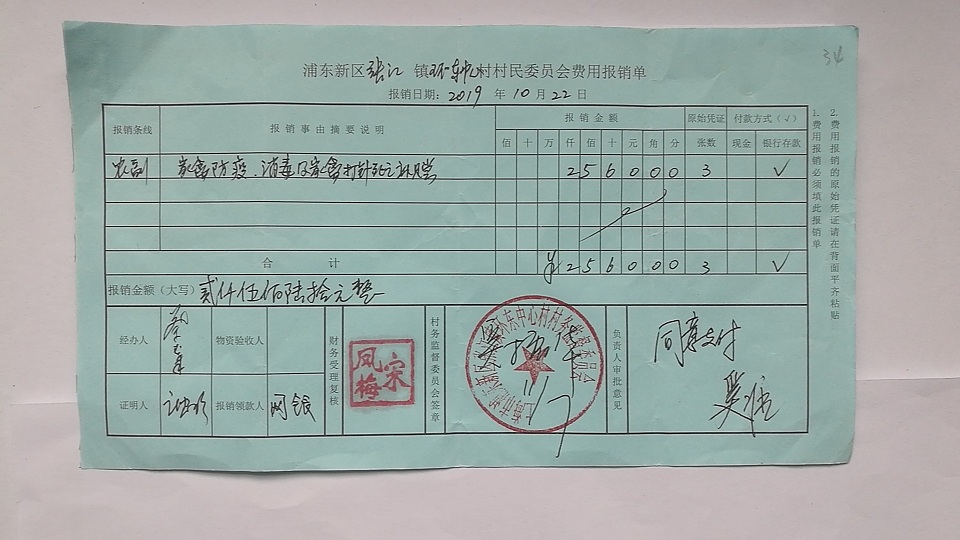 34
浦东新区张江镇环东中心村村民委员会费用报销单
报销日期：2019年10月22日
报销条线 报销事由摘要说明 报销金额 原始凭证 付款方式（√）
佰 十 万 仟 佰 十 元 角 分 张数 现金 银行存款
农副 家禽防疫、消毒及家禽打针死亡补偿 2 5 6 0 0 0 3 √
合计 ¥ 2 5 6 0 0 0 3 √
报销金额（大写）贰仟伍佰陆拾元整
经办人 物资验收人 财务受理复核 宋凤梅 村务监督委员会签章 11/7 负责人审批意见 同意支付
证明人 报销领款人 网银
1.费用报销必须填此报销单
2.费用报销的原始凭证请在背面平齐粘贴